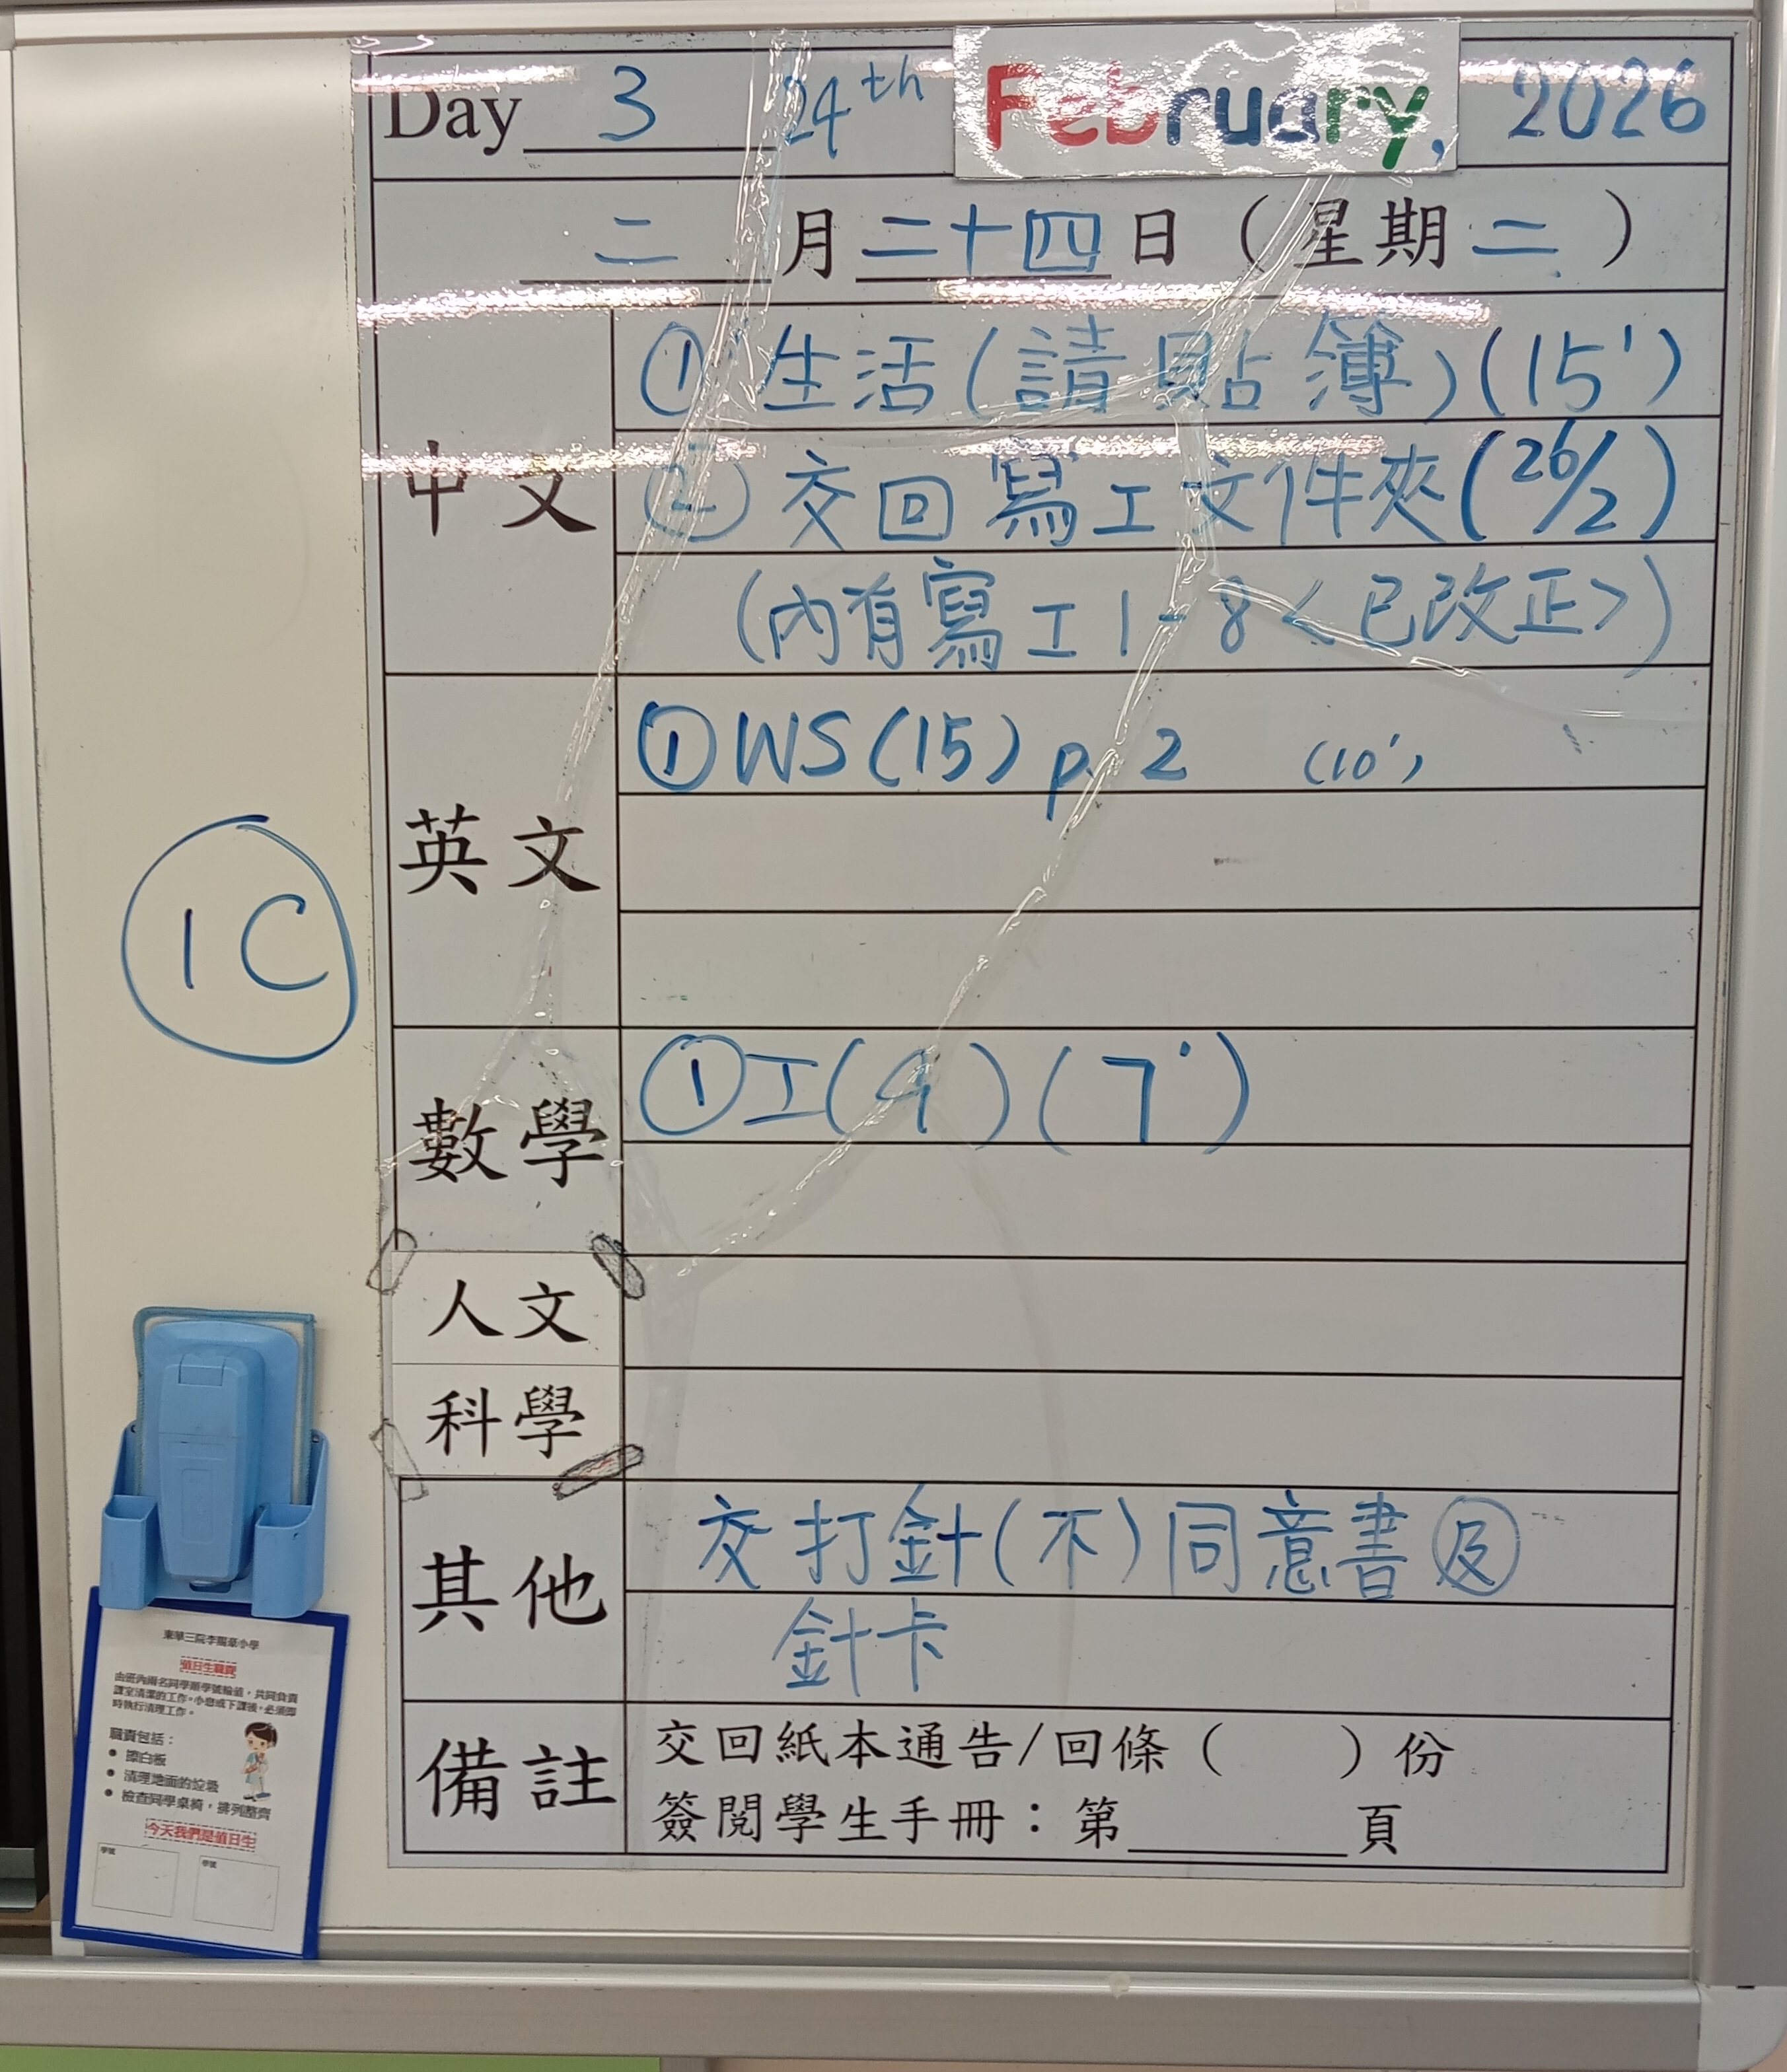 Day 3 24th February, 2026
二 月 二十四 日 ( 星期 二 )
中文
① 生活 (請貼簿) (15')
② 交回寫工文件夾 (26/2)
(內有寫工1-8<已改正>)
英文
① WS (15) p. 2 (10')
1C
數學
① 工(4) (7')
人文
科學
其他
交打針(不)同意書 及
針卡
備註
交回紙本通告/回條 ( ) 份
簽閱學生手冊：第______頁
值日生職責
由班內兩名同學順學號輪值，共同負責
課室清潔的工作。小息或下課後，必須即
時執行清理工作。
職責包括：
● 擦白板
● 清理地面的垃圾
● 檢查同學桌椅，排列整齊
今天我們是值日生
學號 學號